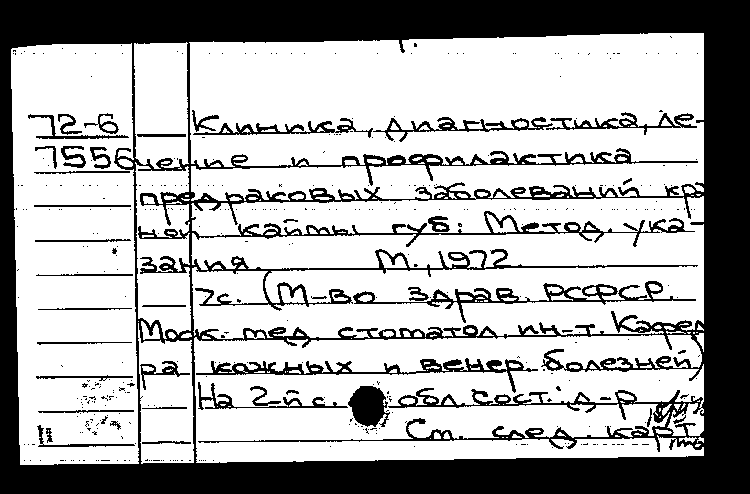 72-6 Клиника, диагностика, ле-
7556 чение и профилактика
предраковых заболеваний крас
ной каймы губ: Метод. ука-
зания. М., 1972
7с. (М-во здрав. РСФСР.
Моск. мед. стоматол. ин-т. Кафед
ра кожных и венер. болезней)
На 2-й с. обл. сост.: д-р
См. след. карт.